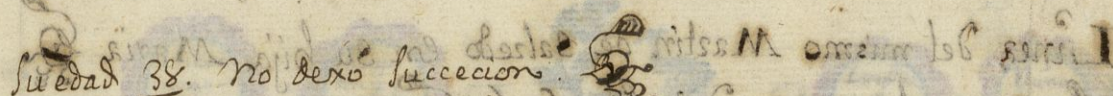 su edad 38. No dexo succecion.